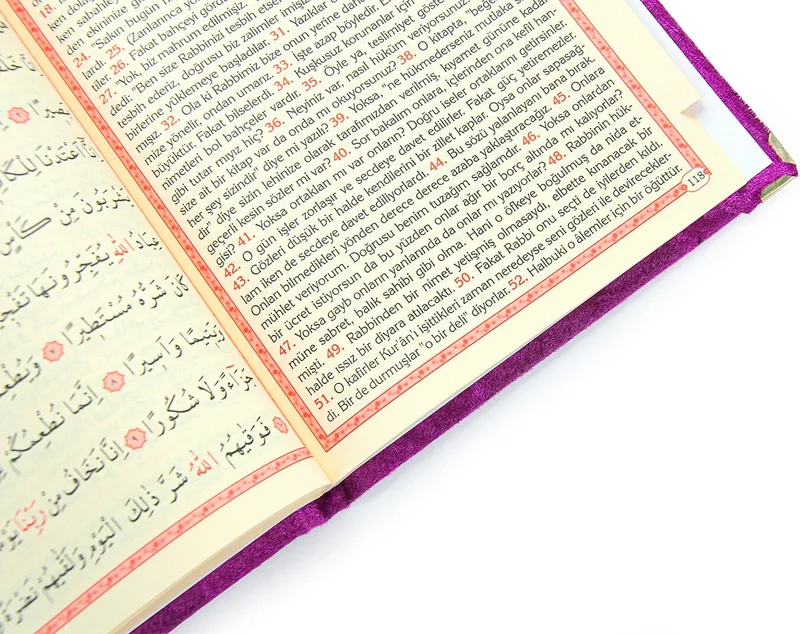 18.
24. "Sakın bugün
lardı. 25. (Zanlarınca
tiler. 26. Fakat bahçeyi
27. "Yok, biz mahrum edilmişiz.
dedi: "Ben size Rabbinizi tesbih
tesbih ederiz, doğrusu biz zalimler imişiz
birlerine yüklemeye başladılar. 31. Yazıklar
mişiz. 32. Ola ki Rabbimiz bize onun yerine
mize yönelir, ondan umarız. 33. İşte azap böyledir.
büyüktür. Fakat bilselerdi. 34. Kuşkusuz korunanlar için
nimetleri bol bahçeler vardır. 35. Öyle ya, teslimiyet
gibi tutar mıyız hiç? 36. Neyiniz var, nasıl hüküm veriyorsunuz?
size ait bir kitap var da onda mı okuyorsunuz? 38. O kitapta,
her şey sizindir" diye mi yazılı? 39. Yoksa, "ne hükmederseniz mutlaka
dir" diye sizin lehinize olarak tarafımızdan verilmiş, kıyamet gününe kadar
geçerli kesin sözler mi var? 40. Sor bakalım onlara, içlerinden ona kefil han-
gisi? 41. Yoksa ortakları mı var onların? Doğru iseler ortaklarını getirsinler.
42. O gün işler zorlaşır ve secdeye davet edilirler. Fakat güç yetiremezler.
43. Gözleri düşük bir halde kendilerini bir zillet kaplar. Oysa onlar sapasağ-
lam iken de secdeye davet ediliyorlardı. 44. Bu sözü yalanlayanı bana bırak.
Onları bilmedikleri yönden derece derece azaba yaklaştıracağız. 45. Onlara
mühlet veriyorum. Doğrusu benim tuzağım sağlamdır. 46. Yoksa onlardan
bir ücret istiyorsun da bu yüzden onlar ağır bir borç altında mı kalıyorlar?
47. Yoksa gayb onların yanlarında da onlar mı yazıyorlar? 48. Rabbinin hük-
müne sabret, balık sahibi gibi olma. Hani o öfkeye boğulmuş da nida et-
mişti. 49. Rabbinden bir nimet yetişmiş olmasaydı, elbette kınanacak bir
halde ıssız bir diyara atılacaktı. 50. Fakat Rabbi onu seçti de iyilerden kıldı.
51. O kafirler Kur'ân'ı işittikleri zaman neredeyse seni gözleri ile devirecekler-
di. Bir de durmuşlar "o bir deli" diyorlar. 52. Halbuki o âlemler için bir öğüttür.
118
مِن كَأْسٍ
اللّٰهِ يُفَجِّرُونَهَا
كَانَ شَرُّهُ مُسْتَطِيرًا ٧
وَيَتِيمًا وَأَسِيرًا ٨ إِنَّمَا نُطْعِمُكُمْ
وَلَا شُكُورًا ٩ إِنَّا نَخَافُ مِن رَّبِّنَا
فَوَقٰيهُمُ اللّٰهُ شَرَّ ذٰلِكَ الْيَوْمِ وَلَقّٰيهُمْ نَضْرَةً